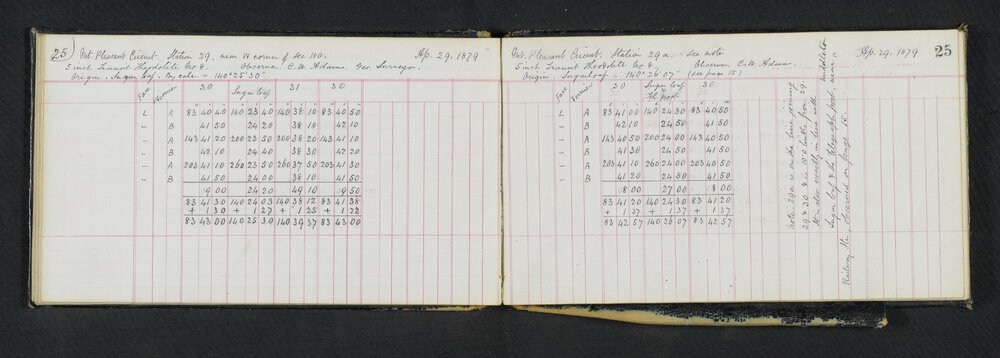 25) Mt. Pleasant Circuit. Station 29, near W corner of Sec 180. Ap. 29. 1879
5 inch Transit Theodolite No 8. Observer C. W. Adams. Geo Surveyor.
Origin. Sugar loaf. By calc = 140° 25' 30"
Face Vernier 30 Sugar loaf 31 30
L A 83 40 40 140 23 40 140 38 10 83 40 50
" B 41 50 24 20 38 10 42 10
" A 143 41 20 200 23 50 200 38 20 143 41 10
" B 42 10 24 40 38 30 42 20
" A 203 41 10 260 23 50 260 37 50 203 41 30
" B 41 50 24 00 38 10 41 50
9 00 24 20 49 10 9 50
83 41 30 140 24 03 140 38 12 83 41 38
+ 1 30 + 1 27 + 1 25 + 1 22
83 43 00 140 25 30 140 39 37 83 43 00
Mt. Pleasant Circuit Station 29a. See note Ap. 29. 1879 25
5 inch Transit Theodolite No 8, Observer C. W. Adams.
Origin. Sugarloaf = 140° 26' 07" (see page 15)
Face Vernier 30 Sugar loaf Tel. post. 30
L A 83 41 00 140 24 30 83 40 50
" B 42 10 24 50 41 50
" A 143 40 50 200 24 00 143 40 50
" B 41 30 24 50 41 50
" A 203 41 10 260 24 00 203 40 50
" B 41 20 24 50 41 50
8 00 27 00 8 00
83 41 20 140 24 30 83 41 20
+ 1 37 + 1 37 + 1 37
83 42 57 140 26 07 83 42 57
Note. 29a is on the line joining
29 & 30 & is 10.8 links from 29
It is also exactly in line with
Sugar loaf & the telegraph post, near Middleton
Railway Stn, observed on page 15.